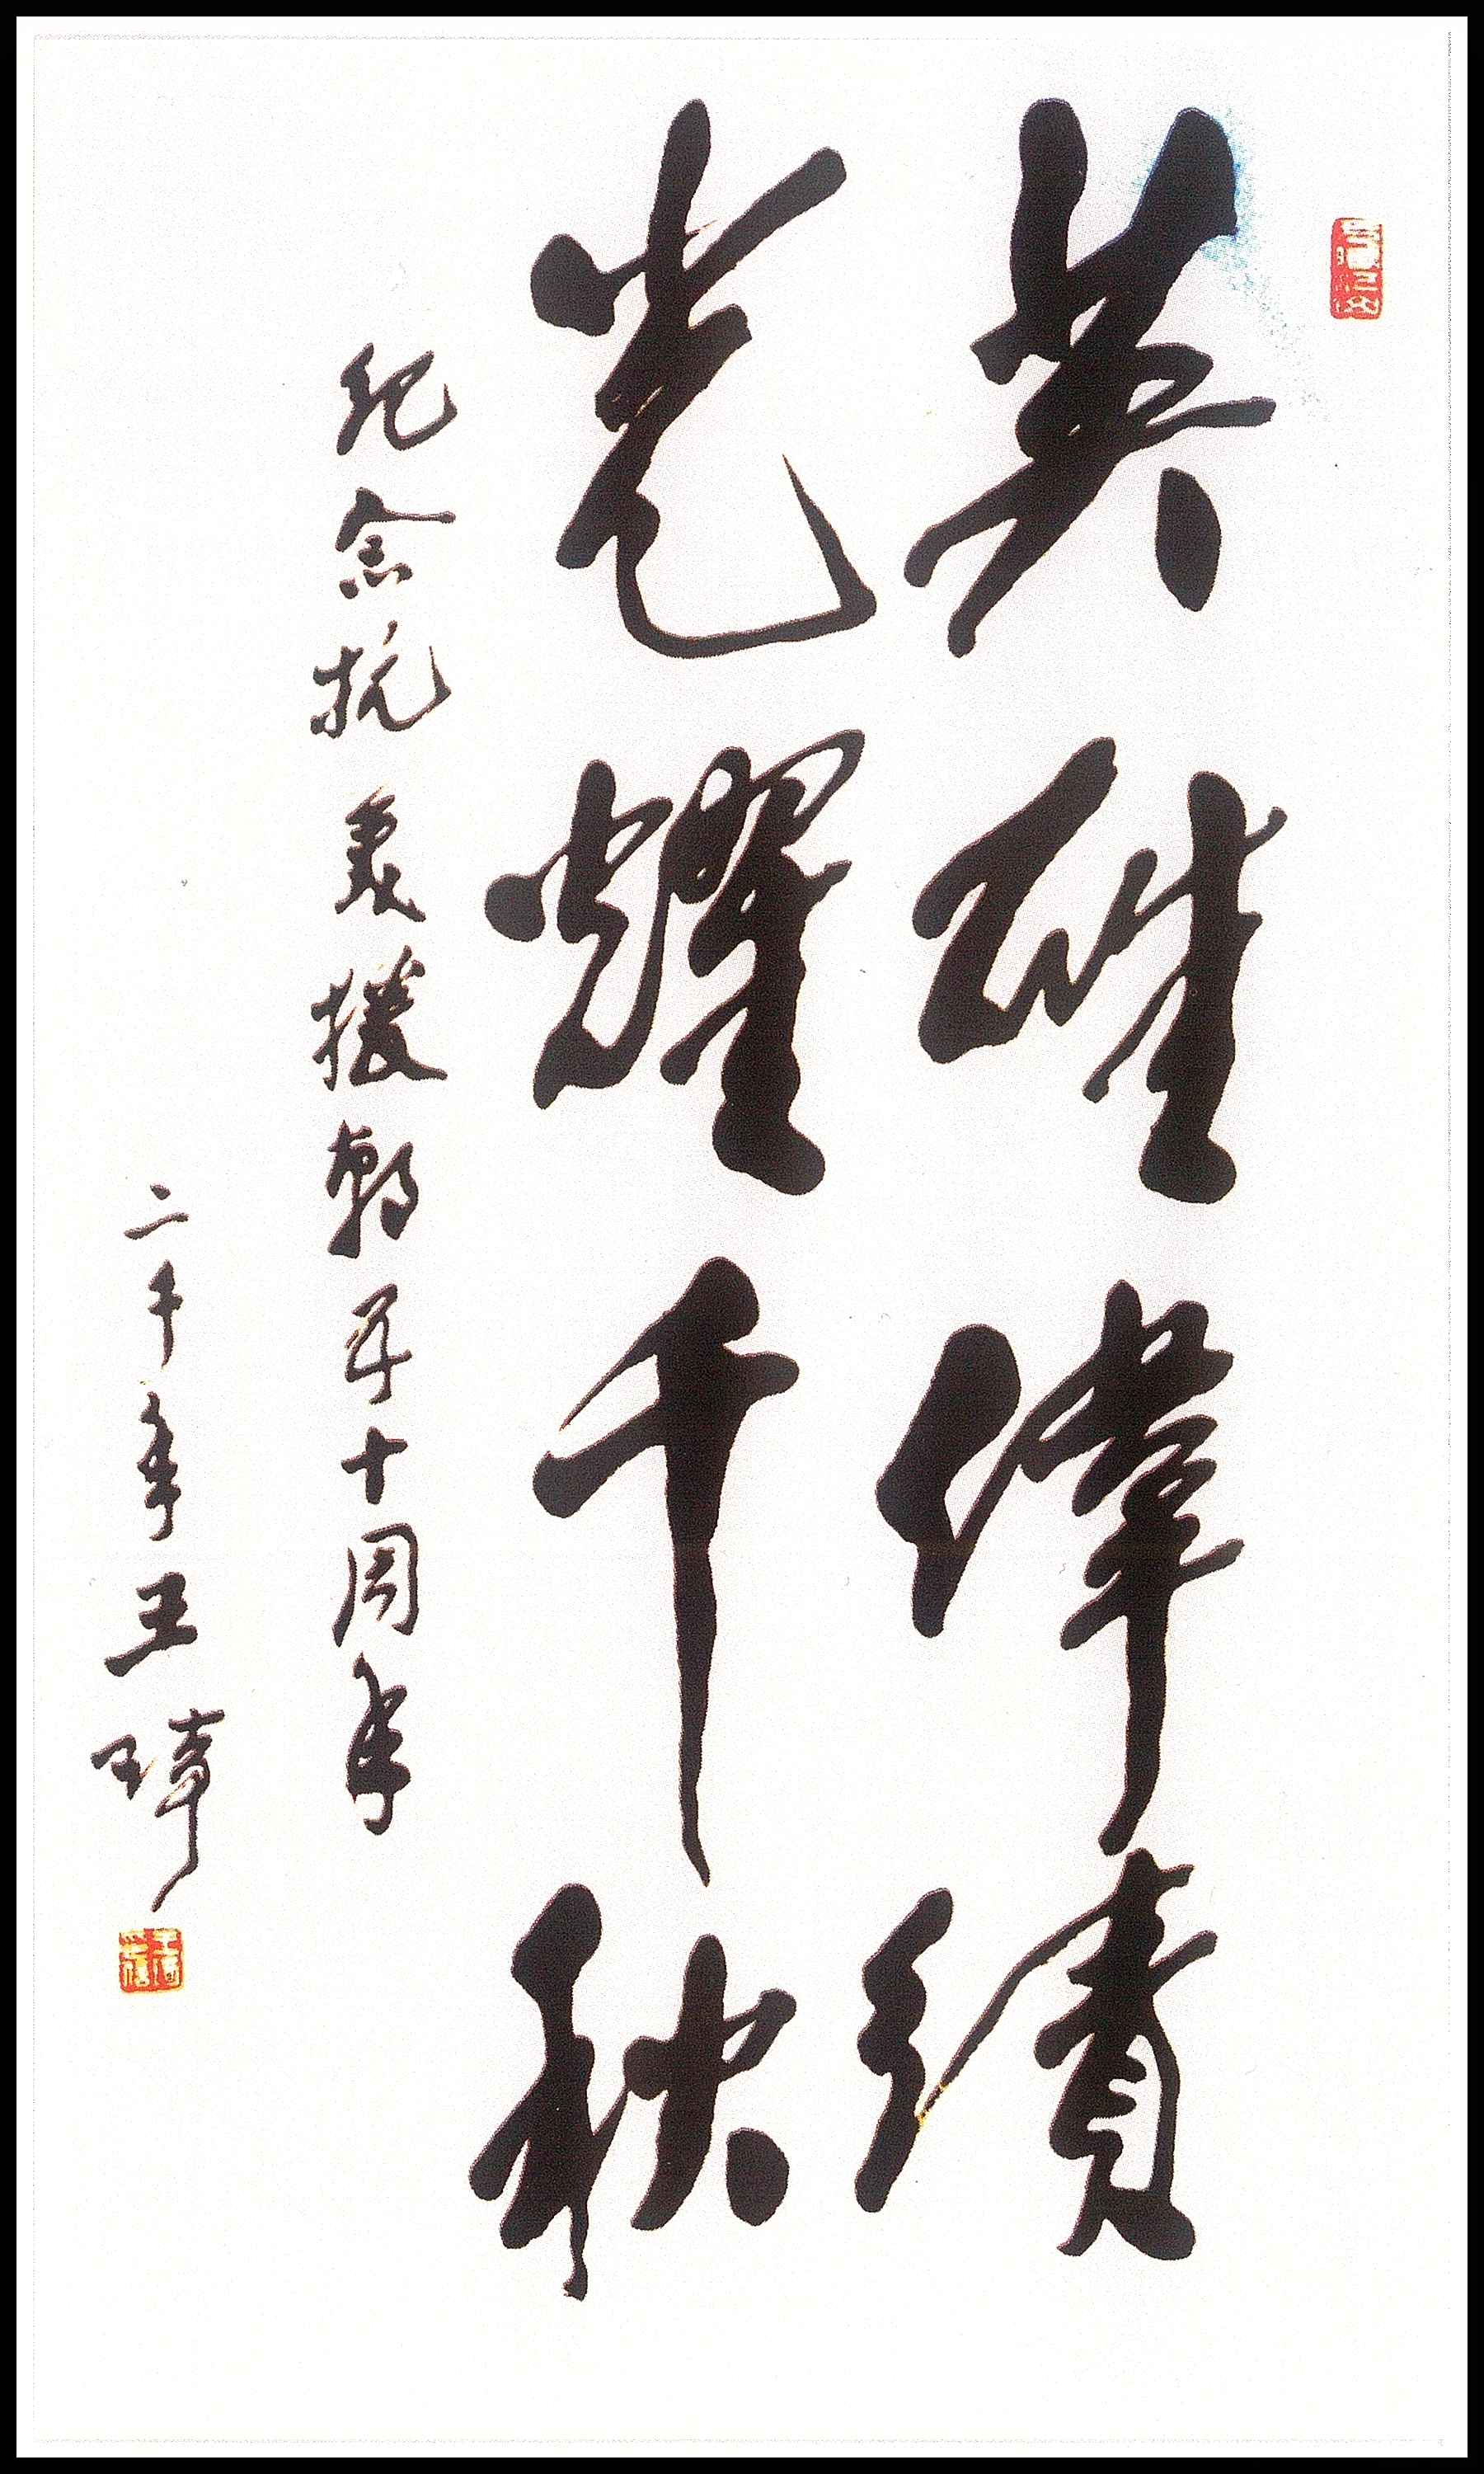 英雄偉績
光耀千秋
纪念抗美援朝五十周年
二千年王琦